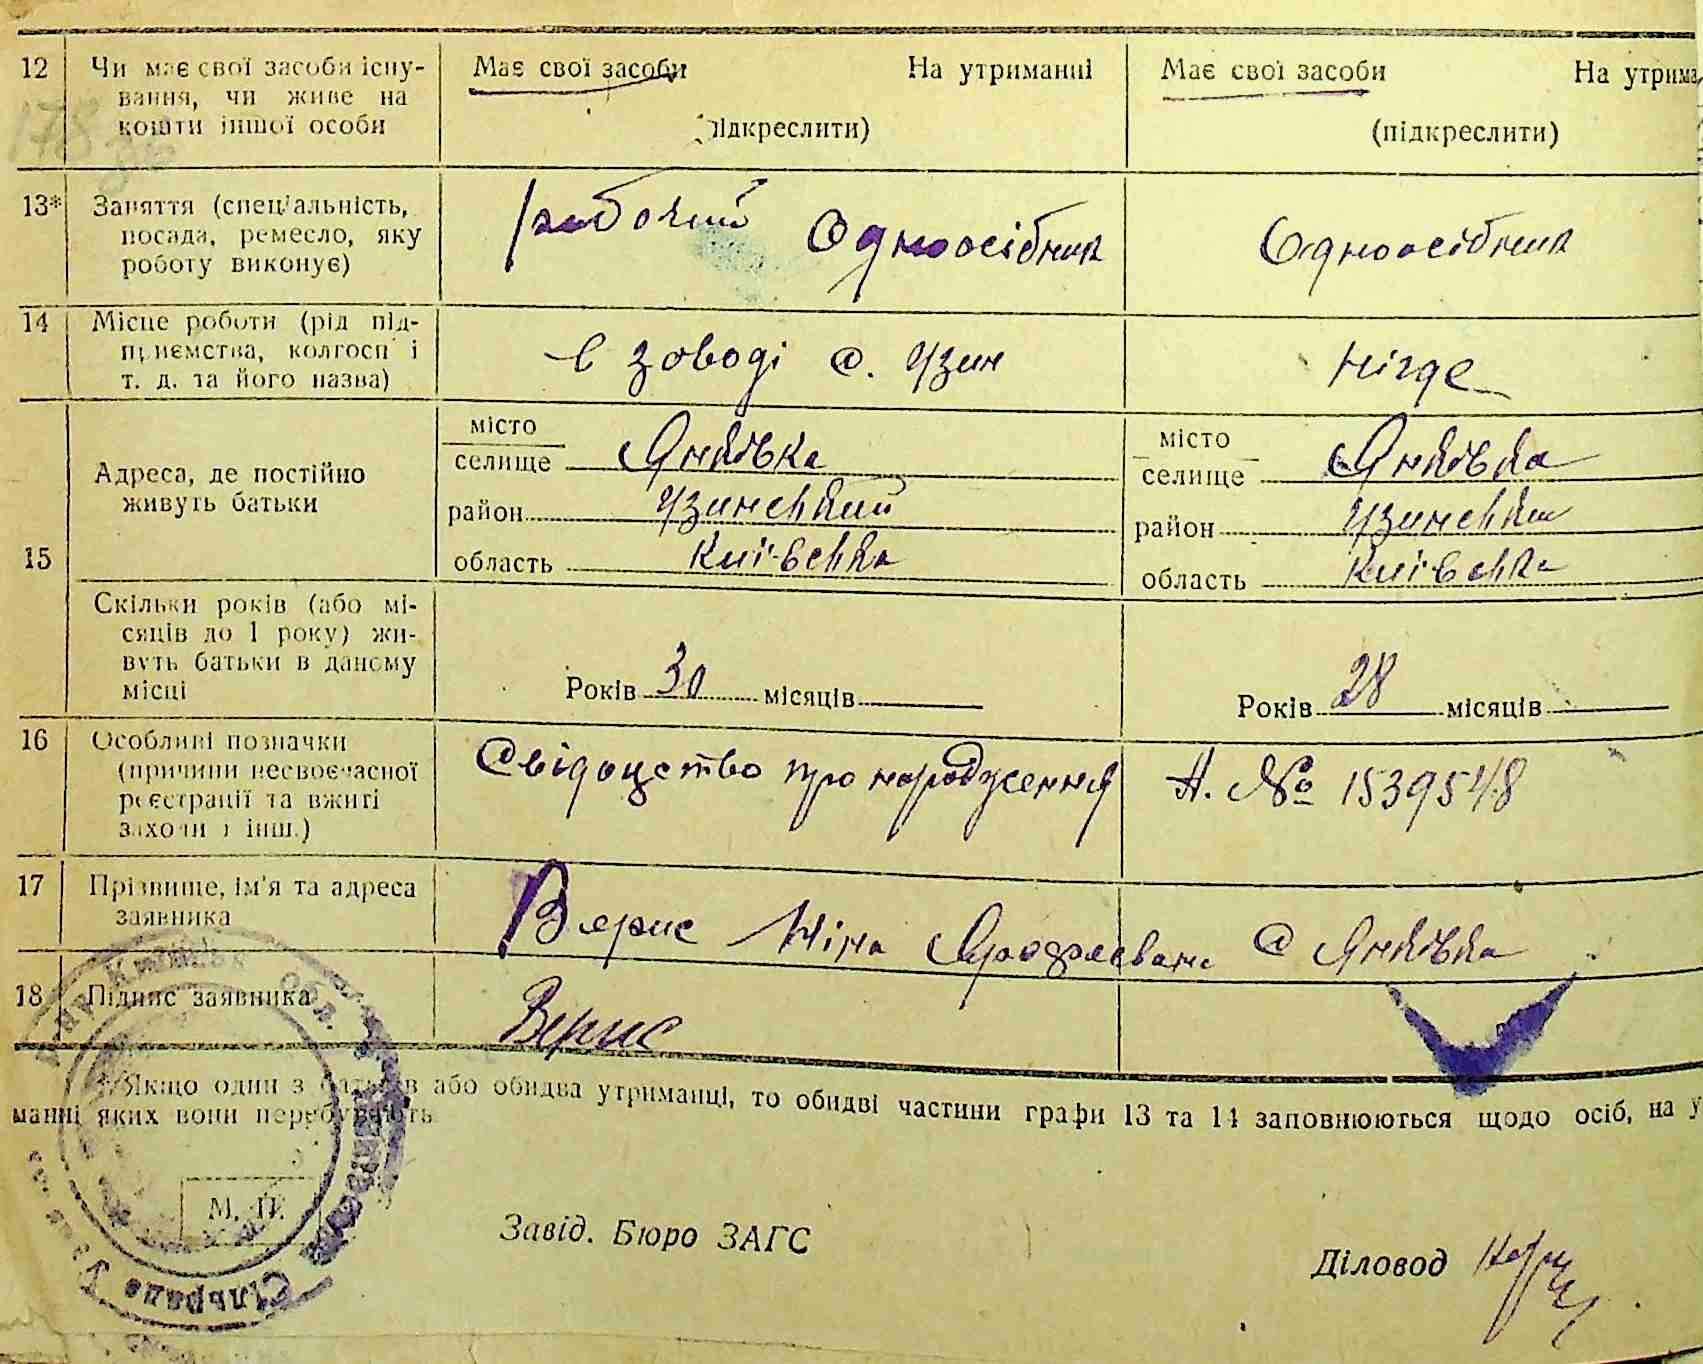 12 Чи має свої засоби існу-
вання, чи живе на
кошти іншої особи
Має свої засоби На утриманні
(підкреслити)
Має свої засоби На утрима
(підкреслити)
13* Заняття (спеціальність,
посада, ремесло, яку
роботу виконує)
рабочий Одноосібник
Одноосібник
14 Місце роботи (рід під-
приємства, колгосп і
т. д. та його назва)
в зоводі с. Узин
нігде
15 Адреса, де постійно
живуть батьки
місто
селище Янківка
район Узинський
область Київська
місто
селище Янківка
район Узинський
область Київська
Скільки років (або мі-
сяців до 1 року) жи-
вуть батьки в даному
місці
Років 30 місяців
Років 28 місяців
16 Особливі позначки
(причини несвоєчасної
реєстрації та вжиті
заходи і інш.)
Свідоцство про народження
А. № 1539548
17 Прізвище, ім'я та адреса
заявника
Ніна с Янківка
18 Підпис заявника
*) Якщо один з батьків або обидва утриманці, то обидві частини графи 13 та 14 заповнюються щодо осіб, на у
манні яких вони перебувають
М. П.
Завід. Бюро ЗАГС
Діловод
Сільрада